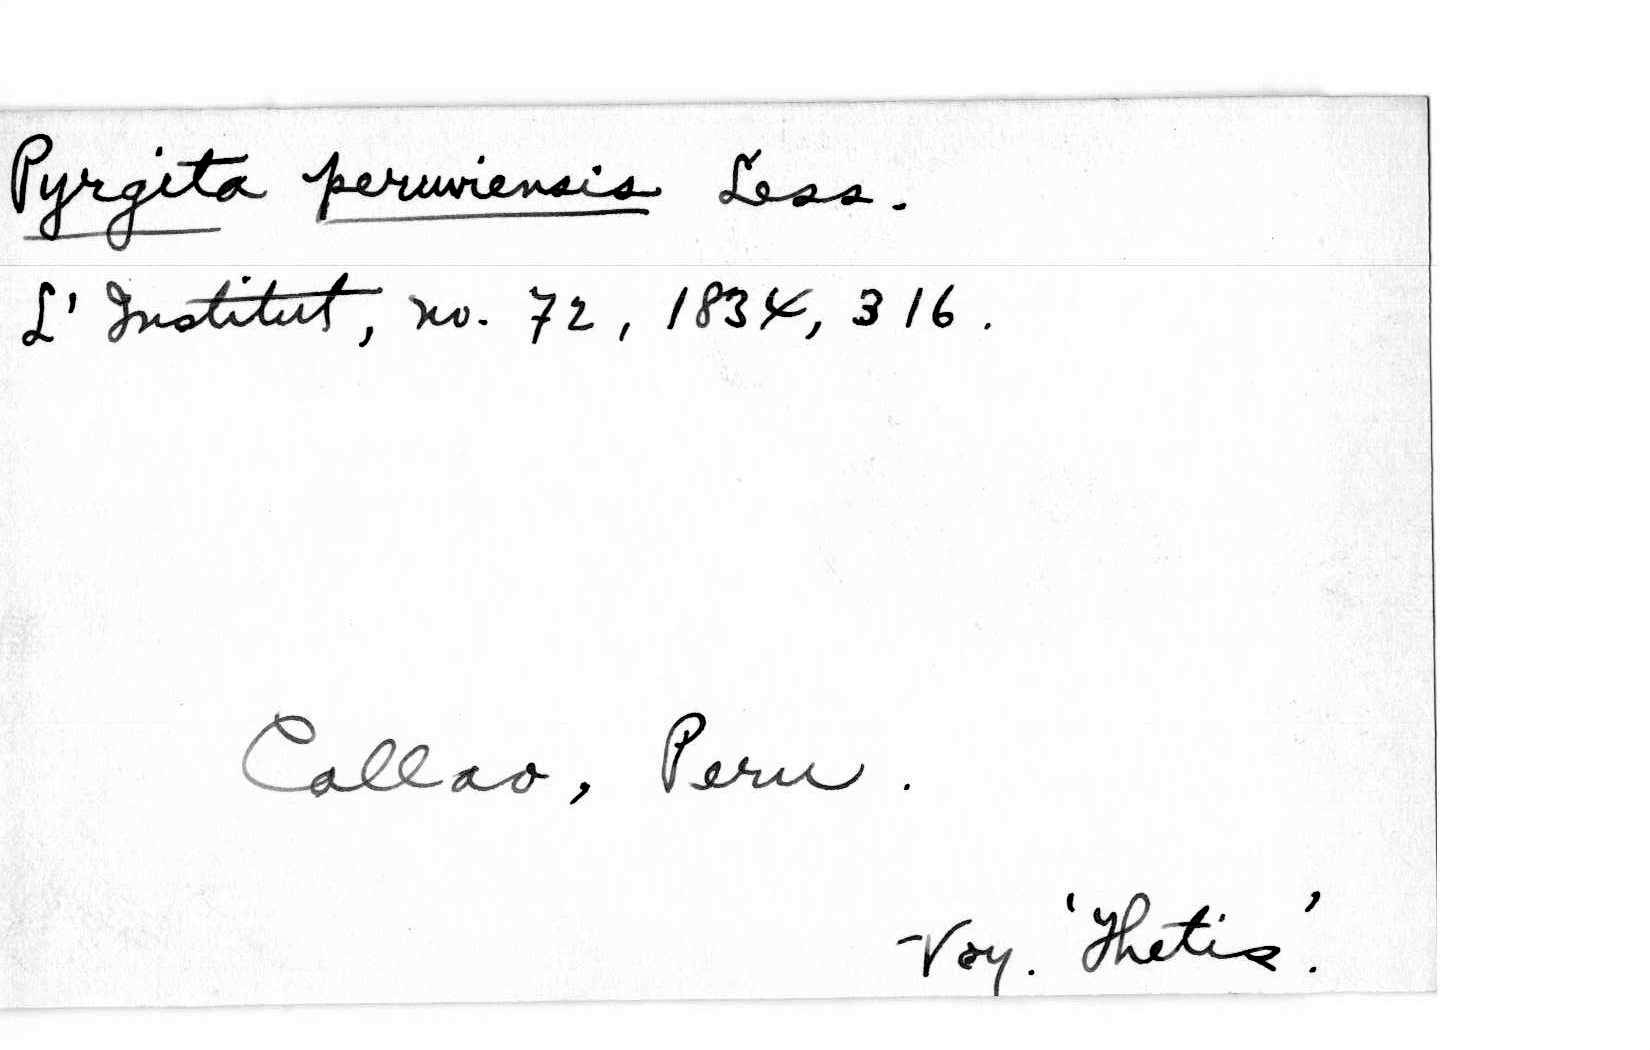 Pyrgita peruviensis Less.
L' Institut, no. 72, 1834, 316.
Callao, Peru.
Voy. 'Thetis'.